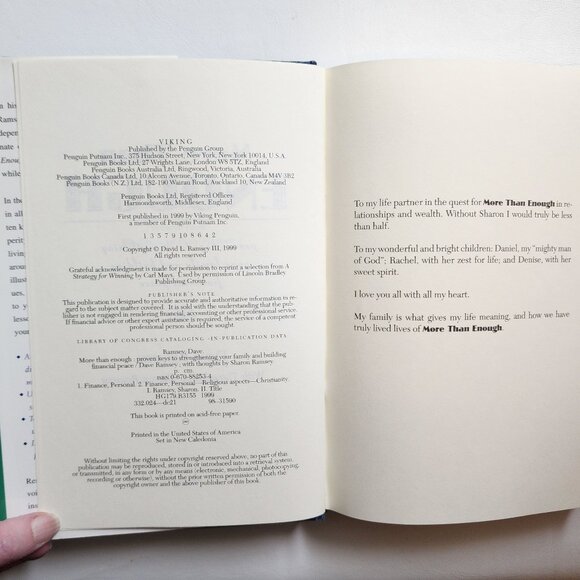 VIKING
Published by the Penguin Group
Penguin Putnam Inc., 375 Hudson Street, New York, New York 10014, U.S.A.
Penguin Books Ltd, 27 Wrights Lane, London W8 5TZ, England
Penguin Books Australia Ltd, Ringwood, Victoria, Australia
Penguin Books Canada Ltd, 10 Alcorn Avenue, Toronto, Ontario, Canada M4V 3B2
Penguin Books (N.Z.) Ltd, 182-190 Wairau Road, Auckland 10, New Zealand
Penguin Books Ltd, Registered Offices:
Harmondsworth, Middlesex, England
First published in 1999 by Viking Penguin,
a member of Penguin Putnam Inc.
1 3 5 7 9 10 8 6 4 2
Copyright © David L. Ramsey III, 1999
All rights reserved
Grateful acknowledgment is made for permission to reprint a selection from A
Strategy for Winning by Carl Mays. Used by permission of Lincoln Bradley
Publishing Group.
PUBLISHER'S NOTE
This publication is designed to provide accurate and authoritative information in re-
gard to the subject matter covered. It is sold with the understanding that the pub-
lisher is not engaged in rendering financial, accounting or other professional service.
If financial advice or other expert assistance is required, the service of a competent
professional person should be sought.
LIBRARY OF CONGRESS CATALOGING-IN-PUBLICATION DATA
Ramsey, Dave
More than enough : proven keys to strengthening your family and building
financial peace / Dave Ramsey ; with thoughts by Sharon Ramsey.
p. cm.
ISBN 0-670-88253-4
1. Finance, Personal. 2. Finance, Personal—Religious aspects—Christianity.
I. Ramsey, Sharon. II. Title
HG179.R3155 1999
332.024—dc21 98-31500
This book is printed on acid-free paper.
Printed in the United States of America
Set in New Caledonia
Without limiting the rights under copyright reserved above, no part of this
publication may be reproduced, stored in or introduced into a retrieval system,
or transmitted, in any form or by any means (electronic, mechanical, photocopying,
recording or otherwise), without the prior written permission of both the
copyright owner and the above publisher of this book.
To my life partner in the quest for More Than Enough in re-
lationships and wealth. Without Sharon I would truly be less
than half.
To my wonderful and bright children: Daniel, my "mighty man
of God"; Rachel, with her zest for life; and Denise, with her
sweet spirit.
I love you all with all my heart.
My family is what gives my life meaning, and how we have
truly lived lives of More Than Enough.